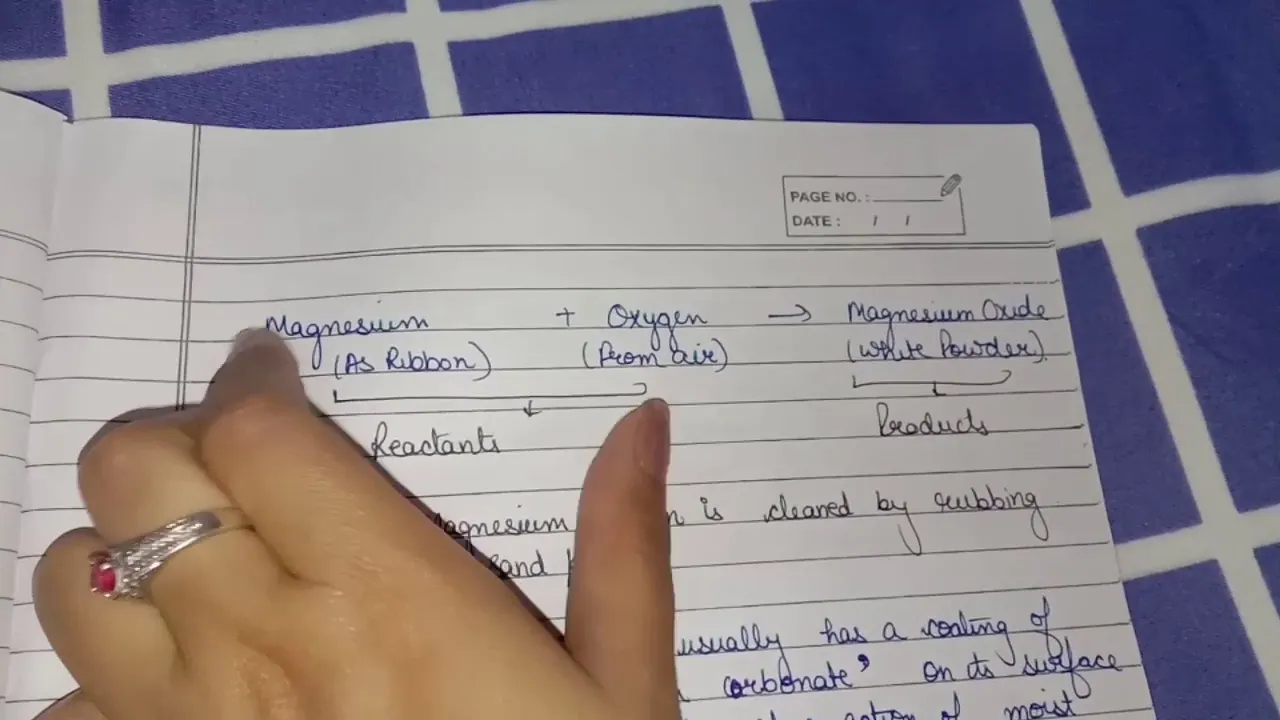 PAGE NO. :
DATE : / /
Magnesium + Oxygen → Magnesium Oxide
(As Ribbon) (from air) (White Powder).
Reactants Products
is cleaned by rubbing
sand
usually has a coating of
carbonate' on its surface
action of moist